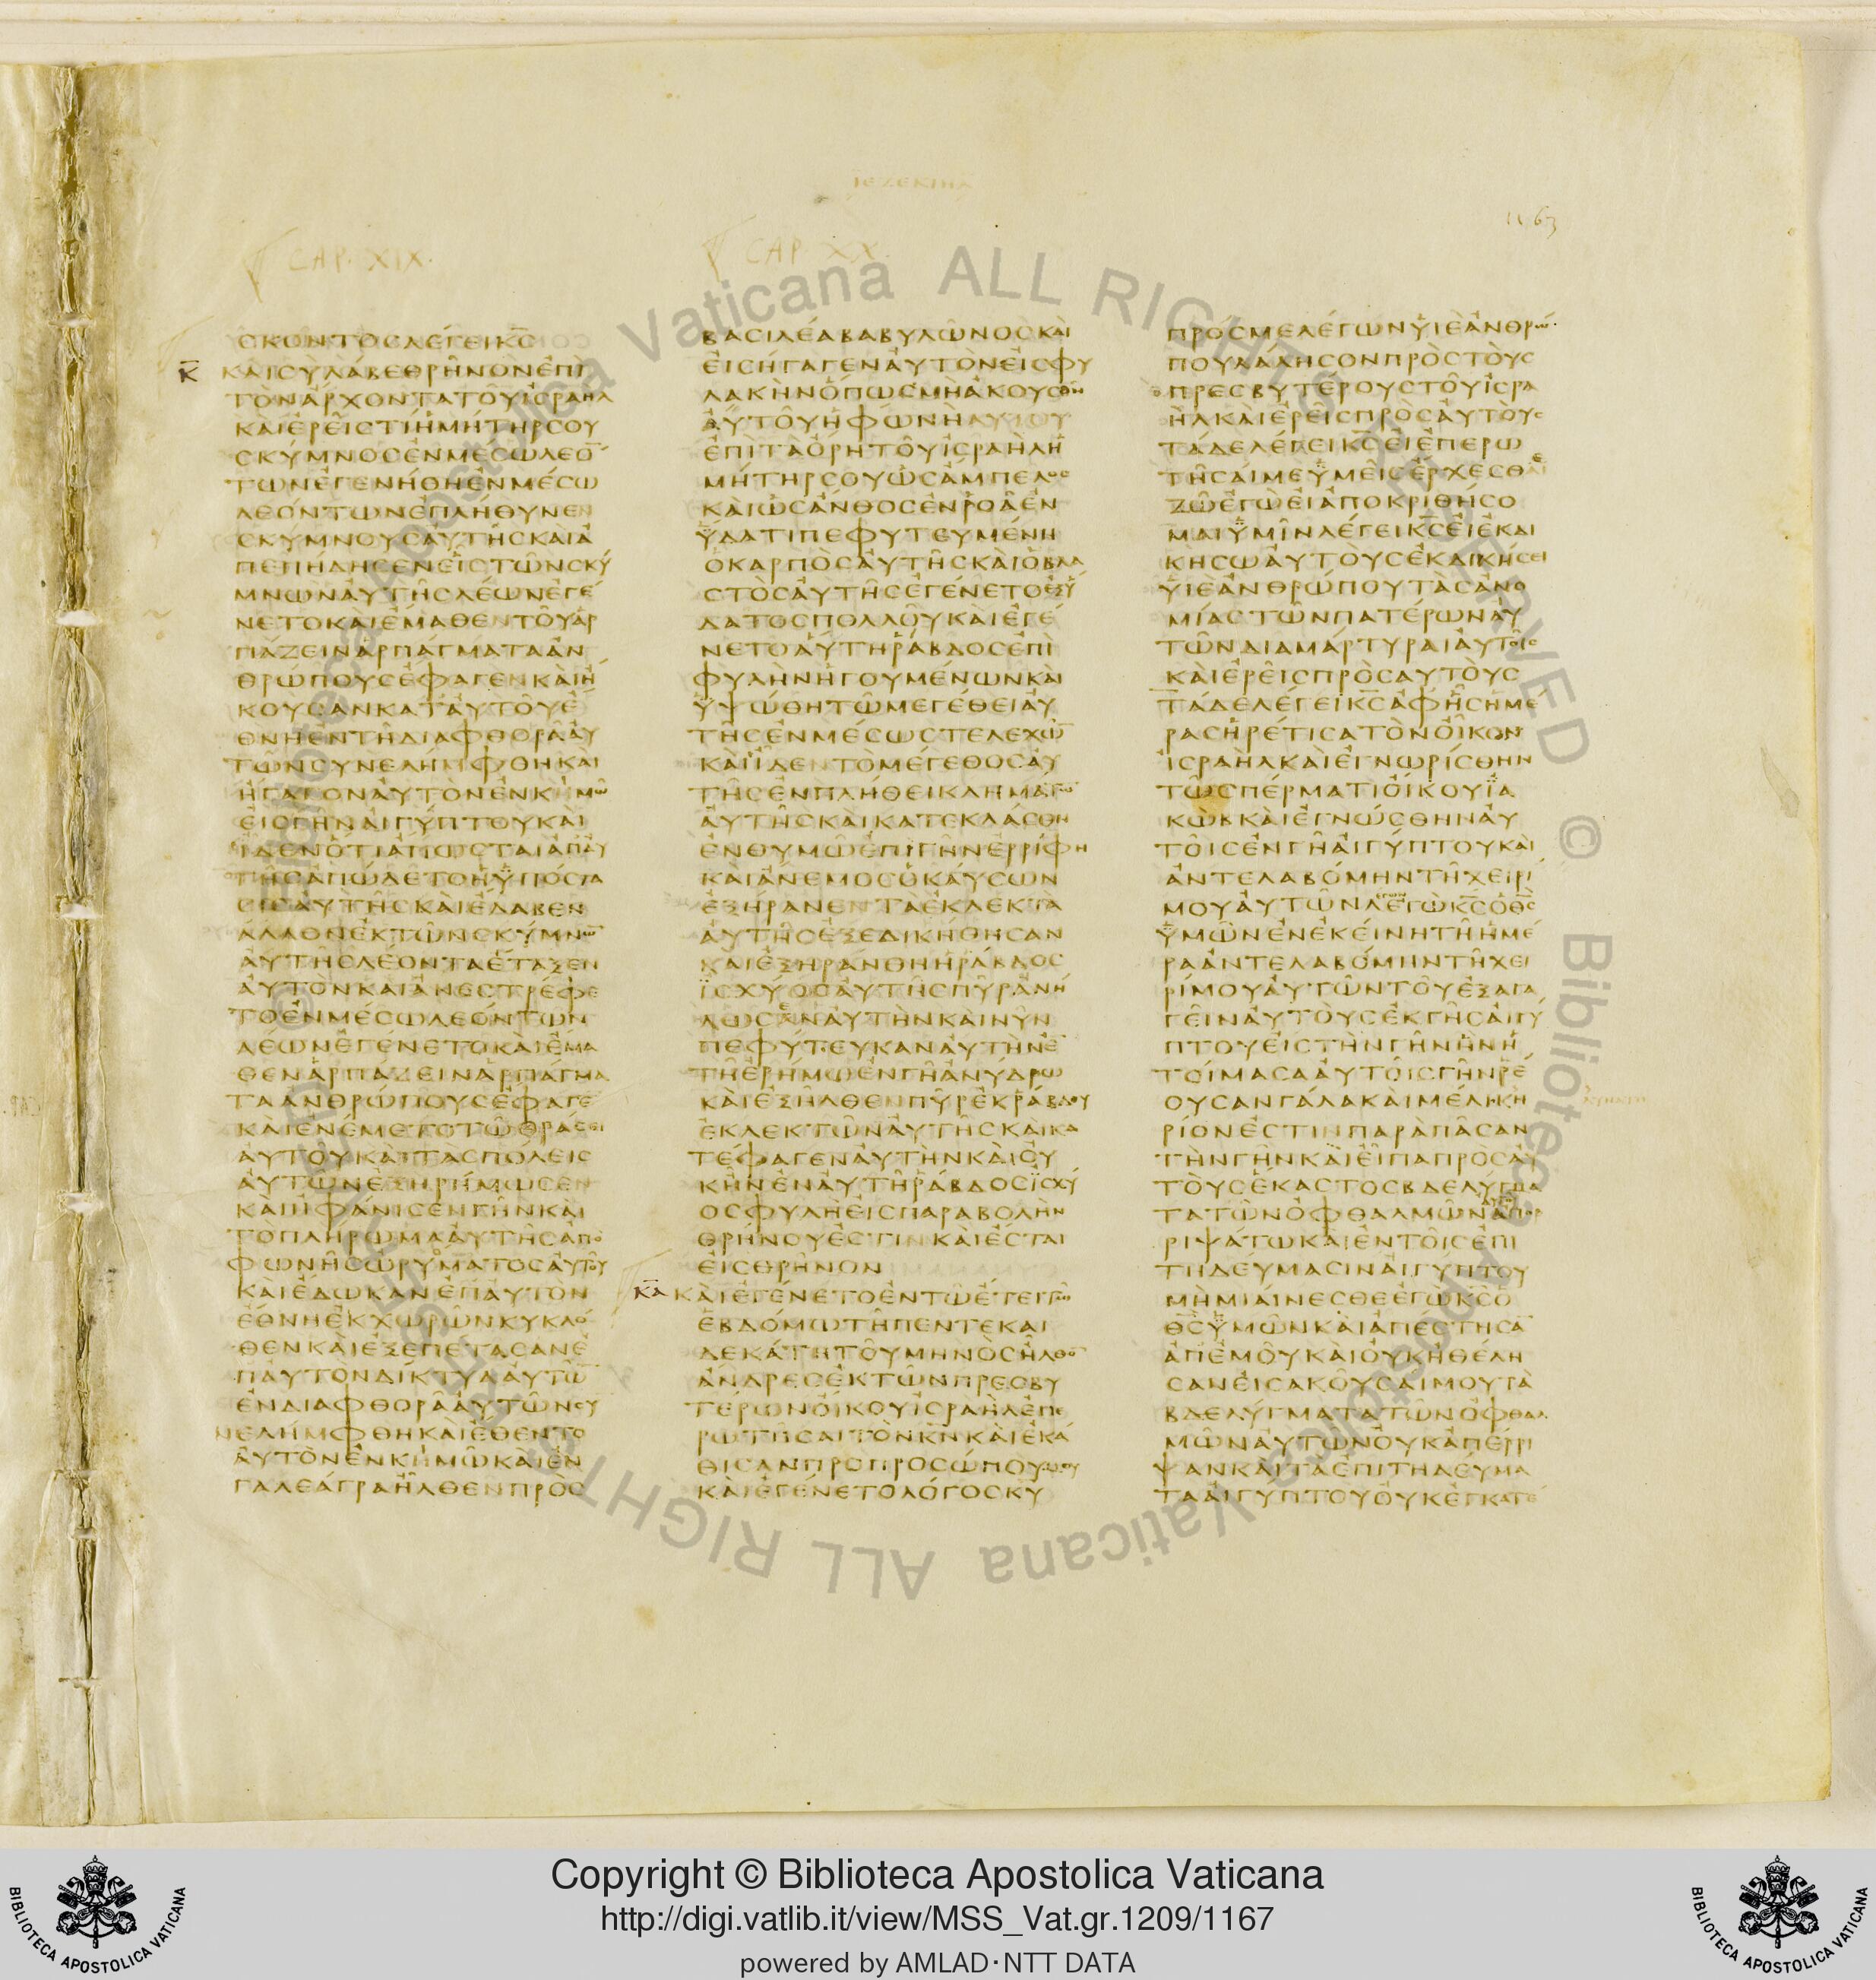 ΙΕΖΕΚΙΗΛ
1163
CAP. XIX.
CAP. XX.
ΣΚΟΝΤΟΣΛΕΓΕΙΚΣ
Κ ΚΑΙΣΥΛΑΒΕΘΡΗΝΟΝΕΠΙ
ΤΟΝΑΡΧΟΝΤΑΤΟΥΙΣΡΑΗΛ
ΚΑΙΕΡΕΙΣΤΙΗΜΗΤΗΡΣΟΥ
ΣΚΥΜΝΟΣΕΝΜΕΣΩΛΕΟ
ΤΩΝΕΓΕΝΗΘΗΕΝΜΕΣΩ
ΛΕΟΝΤΩΝΕΠΛΗΘΥΝΕΝ
ΣΚΥΜΝΟΥΣΑΥΤΗΣΚΑΙΑ
ΠΕΠΗΔΗΣΕΝΕΙΣΤΩΝΣΚΥ
ΜΝΩΝΑΥΤΗΣΛΕΩΝΕΓΕ
ΝΕΤΟΚΑΙΕΜΑΘΕΝΤΟΥΑΡ
ΠΑΖΕΙΝΑΡΠΑΓΜΑΤΑΑΝ
ΘΡΩΠΟΥΣΕΦΑΓΕΝΚΑΙΗ
ΚΟΥΣΑΝΚΑΤΑΥΤΟΥΕ
ΘΝΗΕΝΤΗΔΙΑΦΘΟΡΑΑΥ
ΤΩΝΣΥΝΕΛΗΜΦΘΗΚΑΙ
ΗΓΑΓΟΝΑΥΤΟΝΕΝΚΗΜΩ
ΕΙΣΓΗΝΑΙΓΥΠΤΟΥΚΑΙ
ΙΔΕΝΟΤΙΑΠΩΣΤΑΙΑΠΑΥ
ΤΗΣΑΠΩΛΕΤΟΗΥΠΟΣΤΑ
ΣΙΣΑΥΤΗΣΚΑΙΕΛΑΒΕΝ
ΑΛΛΟΝΕΚΤΩΝΣΚΥΜΝΩ
ΑΥΤΗΣΛΕΟΝΤΑΕΤΑΞΕΝ
ΑΥΤΟΝΚΑΙΑΝΕΣΤΡΕΦΕ
ΤΟΕΝΜΕΣΩΛΕΟΝΤΩΝ
ΛΕΩΝΕΓΕΝΕΤΟΚΑΙΕΜΑ
ΘΕΝΑΡΠΑΖΕΙΝΑΡΠΑΓΜΑ
ΤΑΑΝΘΡΩΠΟΥΣΕΦΑΓΕ
ΚΑΙΕΝΕΜΕΤΟΤΩΘΡΑΣΕΙ
ΑΥΤΟΥΚΑΙΤΑΣΠΟΛΕΙΣ
ΑΥΤΩΝΕΞΗΡΗΜΩΣΕΝ
ΚΑΙΗΦΑΝΙΣΕΝΓΗΝΚΑΙ
ΤΟΠΛΗΡΩΜΑΑΥΤΗΣΑΠΟ
ΦΩΝΗΣΩΡΥΜΑΤΟΣΑΥΤΟΥ
ΚΑΙΕΔΩΚΑΝΕΠΑΥΤΟΝ
ΕΘΝΗΕΚΧΩΡΩΝΚΥΚΛΟ
ΘΕΝΚΑΙΕΞΕΠΕΤΑΣΑΝΕ
ΠΑΥΤΟΝΔΙΚΤΥΑΑΥΤΩ
ΕΝΔΙΑΦΘΟΡΑΑΥΤΩΝΣΥ
ΝΕΛΗΜΦΘΗΚΑΙΕΘΕΝΤΟ
ΑΥΤΟΝΕΝΚΗΜΩΚΑΙΕΝ
ΓΑΛΕΑΓΡΑΗΛΘΕΝΠΡΟΣ
ΒΑΣΙΛΕΑΒΑΒΥΛΩΝΟΣΚΑΙ
ΕΙΣΗΓΑΓΕΝΑΥΤΟΝΕΙΣΦΥ
ΛΑΚΗΝΟΠΩΣΜΗΑΚΟΥΣΘΗ
ΑΥΤΟΥΗΦΩΝΗ
ΕΠΙΤΑΟΡΗΤΟΥΙΣΡΑΗΛΗ
ΜΗΤΗΡΣΟΥΩΣΑΜΠΕΛΟΣ
ΚΑΙΩΣΑΝΘΟΣΕΝΡΟΑΕΝ
ΥΔΑΤΙΠΕΦΥΤΕΥΜΕΝΗ
ΟΚΑΡΠΟΣΑΥΤΗΣΚΑΙΟΒΛΑ
ΣΤΟΣΑΥΤΗΣΕΓΕΝΕΤΟΕΞΥ
ΔΑΤΟΣΠΟΛΛΟΥΚΑΙΕΓΕ
ΝΕΤΟΑΥΤΗΡΑΒΔΟΣΕΠΙ
ΦΥΛΗΝΗΓΟΥΜΕΝΩΝΚΑΙ
ΥΨΩΘΗΤΩΜΕΓΕΘΕΙΑΥ
ΤΗΣΕΝΜΕΣΩΣΤΕΛΕΧΩ
ΚΑΙΙΔΕΝΤΟΜΕΓΕΘΟΣΑΥ
ΤΗΣΕΝΠΛΗΘΕΙΚΛΗΜΑΤΩ
ΑΥΤΗΣΚΑΙΚΑΤΕΚΛΑΣΘΗ
ΕΝΘΥΜΩΕΠΙΓΗΝΕΡΡΙΦΗ
ΚΑΙΑΝΕΜΟΣΟΚΑΥΣΩΝ
ΕΞΗΡΑΝΕΝΤΑΕΚΛΕΚΤΑ
ΑΥΤΗΣΕΞΕΔΙΚΗΘΗΣΑΝ
ΚΑΙΕΞΗΡΑΝΘΗΗΡΑΒΔΟΣ
ΙΣΧΥΟΣΑΥΤΗΣΠΥΡΑΝΗ
ΛΩΣΕΝΑΥΤΗΝΚΑΙΝΥΝ
ΠΕΦΥΤΕΥΚΑΝΑΥΤΗΝΕ
ΤΗΕΡΗΜΩΕΝΓΗΑΝΥΔΡΩ
ΚΑΙΕΞΗΛΘΕΝΠΥΡΕΚΡΑΒΔΟΥ
ΕΚΛΕΚΤΩΝΑΥΤΗΣΚΑΙΚΑ
ΤΕΦΑΓΕΝΑΥΤΗΝΚΑΙΟΥ
ΚΗΝΕΝΑΥΤΗΡΑΒΔΟΣΙΣΧΥ
ΟΣΦΥΛΗΕΙΣΠΑΡΑΒΟΛΗΝ
ΘΡΗΝΟΥΕΣΤΙΝΚΑΙΕΣΤΑΙ
ΕΙΣΘΡΗΝΟΝ
ΚΑ ΚΑΙΕΓΕΝΕΤΟΕΝΤΩΕΤΕΙΤΩ
ΕΒΔΟΜΩΤΗΠΕΝΤΕΚΑΙ
ΔΕΚΑΤΗΤΟΥΜΗΝΟΣΗΛΘΟ
ΑΝΔΡΕΣΕΚΤΩΝΠΡΕΣΒΥ
ΤΕΡΩΝΟΙΚΟΥΙΣΡΑΗΛΕΠΕ
ΡΩΤΗΣΑΙΤΟΝΚΝΚΑΙΕΚΑ
ΘΙΣΑΝΠΡΟΠΡΟΣΩΠΟΥΜΟΥ
ΚΑΙΕΓΕΝΕΤΟΛΟΓΟΣΚΥ
ΠΡΟΣΜΕΛΕΓΩΝΥΙΕΑΝΘΡΩ
ΠΟΥΛΑΛΗΣΟΝΠΡΟΣΤΟΥΣ
ΠΡΕΣΒΥΤΕΡΟΥΣΤΟΥΙΣΡΑ
ΗΛΚΑΙΕΡΕΙΣΠΡΟΣΑΥΤΟΥΣ
ΤΑΔΕΛΕΓΕΙΚΣΕΙΕΠΕΡΩ
ΤΗΣΑΙΜΕΥΜΕΙΣΕΡΧΕΣΘΑΙ
ΖΩΕΓΩΕΙΑΠΟΚΡΙΘΗΣΟ
ΜΑΙΥΜΙΝΛΕΓΕΙΚΣΕΙΕΚΔΙ
ΚΗΣΩΑΥΤΟΥΣΕΚΔΙΚΗΣΕΙ
ΥΙΕΑΝΘΡΩΠΟΥΤΑΣΑΝΟ
ΜΙΑΣΤΩΝΠΑΤΕΡΩΝΑΥ
ΤΩΝΔΙΑΜΑΡΤΥΡΑΙΑΥΤΟΙΣ
ΚΑΙΕΡΕΙΣΠΡΟΣΑΥΤΟΥΣ
ΤΑΔΕΛΕΓΕΙΚΣΑΦΗΣΗΜΕ
ΡΑΣΗΡΕΤΙΣΑΤΟΝΟΙΚΟΝ
ΙΣΡΑΗΛΚΑΙΕΓΝΩΡΙΣΘΗΝ
ΤΩΣΠΕΡΜΑΤΙΟΙΚΟΥΙΑ
ΚΩΒΚΑΙΕΓΝΩΣΘΗΝΑΥ
ΤΟΙΣΕΝΓΗΑΙΓΥΠΤΟΥΚΑΙ
ΑΝΤΕΛΑΒΟΜΗΝΤΗΧΕΙΡΙ
ΜΟΥΑΥΤΩΝΛΕΓΩΚΣΟΘΣ
ΥΜΩΝΕΝΕΚΕΙΝΗΤΗΗΜΕ
ΡΑΑΝΤΕΛΑΒΟΜΗΝΤΗΧΕΙ
ΡΙΜΟΥΑΥΤΩΝΤΟΥΕΞΑΓΑ
ΓΕΙΝΑΥΤΟΥΣΕΚΓΗΣΑΙΓΥ
ΠΤΟΥΕΙΣΤΗΝΓΗΝΗΝΗ
ΤΟΙΜΑΣΑΑΥΤΟΙΣΓΗΝΡΕ
ΟΥΣΑΝΓΑΛΑΚΑΙΜΕΛΙΚΗ
ΡΙΟΝΕΣΤΙΝΠΑΡΑΠΑΣΑΝ
ΤΗΝΓΗΝΚΑΙΕΙΠΑΠΡΟΣΑΥ
ΤΟΥΣΕΚΑΣΤΟΣΒΔΕΛΥΓΜΑ
ΤΑΤΩΝΟΦΘΑΛΜΩΝΑΠΟΡ
ΡΙΨΑΤΩΚΑΙΕΝΤΟΙΣΕΠΙ
ΤΗΔΕΥΜΑΣΙΝΑΙΓΥΠΤΟΥ
ΜΗΜΙΑΙΝΕΣΘΕΕΓΩΚΣΟ
ΘΣΥΜΩΝΚΑΙΑΠΕΣΤΗΣΑ
ΑΠΕΜΟΥΚΑΙΟΥΚΗΘΕΛΗ
ΣΑΝΕΙΣΑΚΟΥΣΑΙΜΟΥΤΑ
ΒΔΕΛΥΓΜΑΤΑΤΩΝΟΦΘΑΛ
ΜΩΝΑΥΤΩΝΟΥΚΑΠΕΡΡΙ
ΨΑΝΚΑΙΤΑΕΠΙΤΗΔΕΥΜΑ
ΤΑΑΙΓΥΠΤΟΥΟΥΚΕΓΚΑΤΕ
Vaticana ALL RIGHTS RESERVED © Biblioteca Apostolica Vaticana ALL RIGHTS RESERVED © Biblioteca Apostolica
Copyright © Biblioteca Apostolica Vaticana
http://digi.vatlib.it/view/MSS_Vat.gr.1209/1167
powered by AMLAD·NTT DATA
BIBLIOTECA APOSTOLICA VATICANA
BIBLIOTECA APOSTOLICA VATICANA